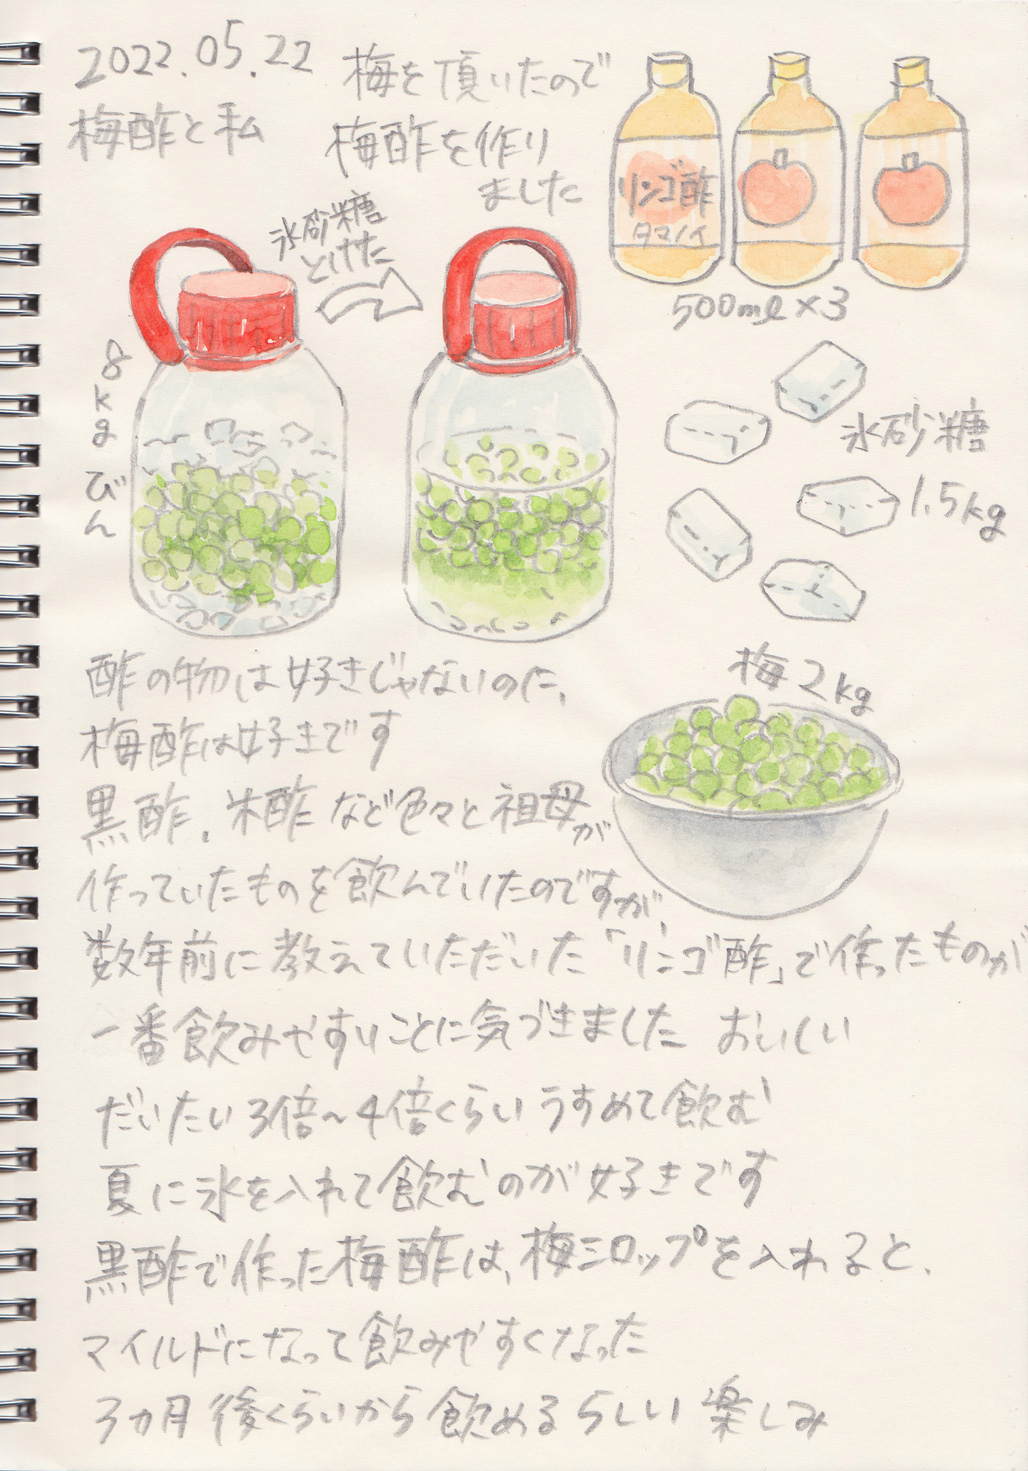 2022.05.22
梅酢と私
梅を頂いたので
梅酢を作り
ました
リンゴ酢
タマノイ
500ml×3
氷砂糖
とけた
8kgびん
氷砂糖
1.5kg
梅2kg
酢の物は好きじゃないのに、
梅酢は好きです
黒酢、米酢など色々と祖母が
作っていたものを飲んでいたのですが、
数年前に教えていただいた「リンゴ酢」で作ったものが
一番飲みやすいことに気づきました おいしい
だいたい3倍～4倍くらいうすめて飲む
夏に氷を入れて飲むのが好きです
黒酢で作った梅酢は、梅シロップを入れると、
マイルドになって飲みやすくなった
3カ月後くらいから飲めるらしい 楽しみ